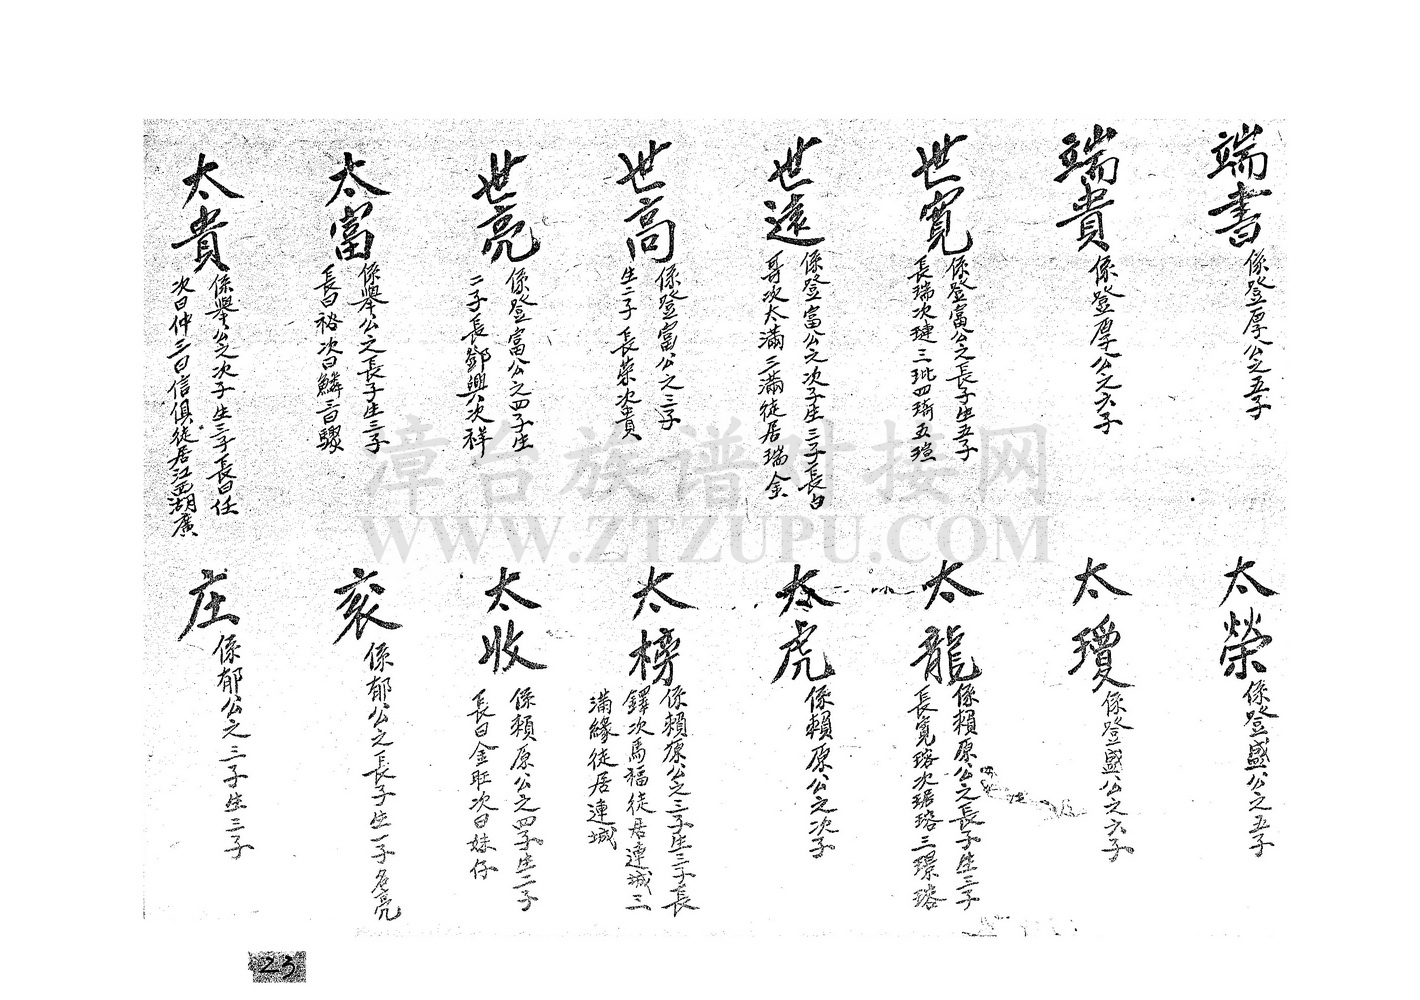 端書
係登厚公之五子
端貴
係登厚公之六子
世寬
係登富公之長子生五子
長瑞次璉三玭四琦五瑄
世遠
係登富公之次子生三子長白
哥次太滿三滿徒居瑞金
世高
係登富公之三子
生二子長榮次貴
世亮
係登富公之四子生
二子長鄧興次祥
太富
係舉公之長子生三子
長曰裕次曰麟三曰驟
太貴
係舉公之次子生三子長曰任
次曰仲三曰信俱徒居江西湖廣
太榮
係登盛公之五子
太瓊
係登盛公之六子
太龍
係賴原公之長子生三子
長寬瑢次琚瑢三璟瑢
太虎
係賴原公之次子
太榜
係賴原公之三子生三子長
鐸次馬福徒居連城三
滿緣徒居連城
太收
係賴原公之四子生二子
長曰金旺次曰妹仔
袞
係郁公之長子生一子名亮
庄
係郁公之三子生三子
漳台族谱对接网
WWW.ZTZUPU.COM
23